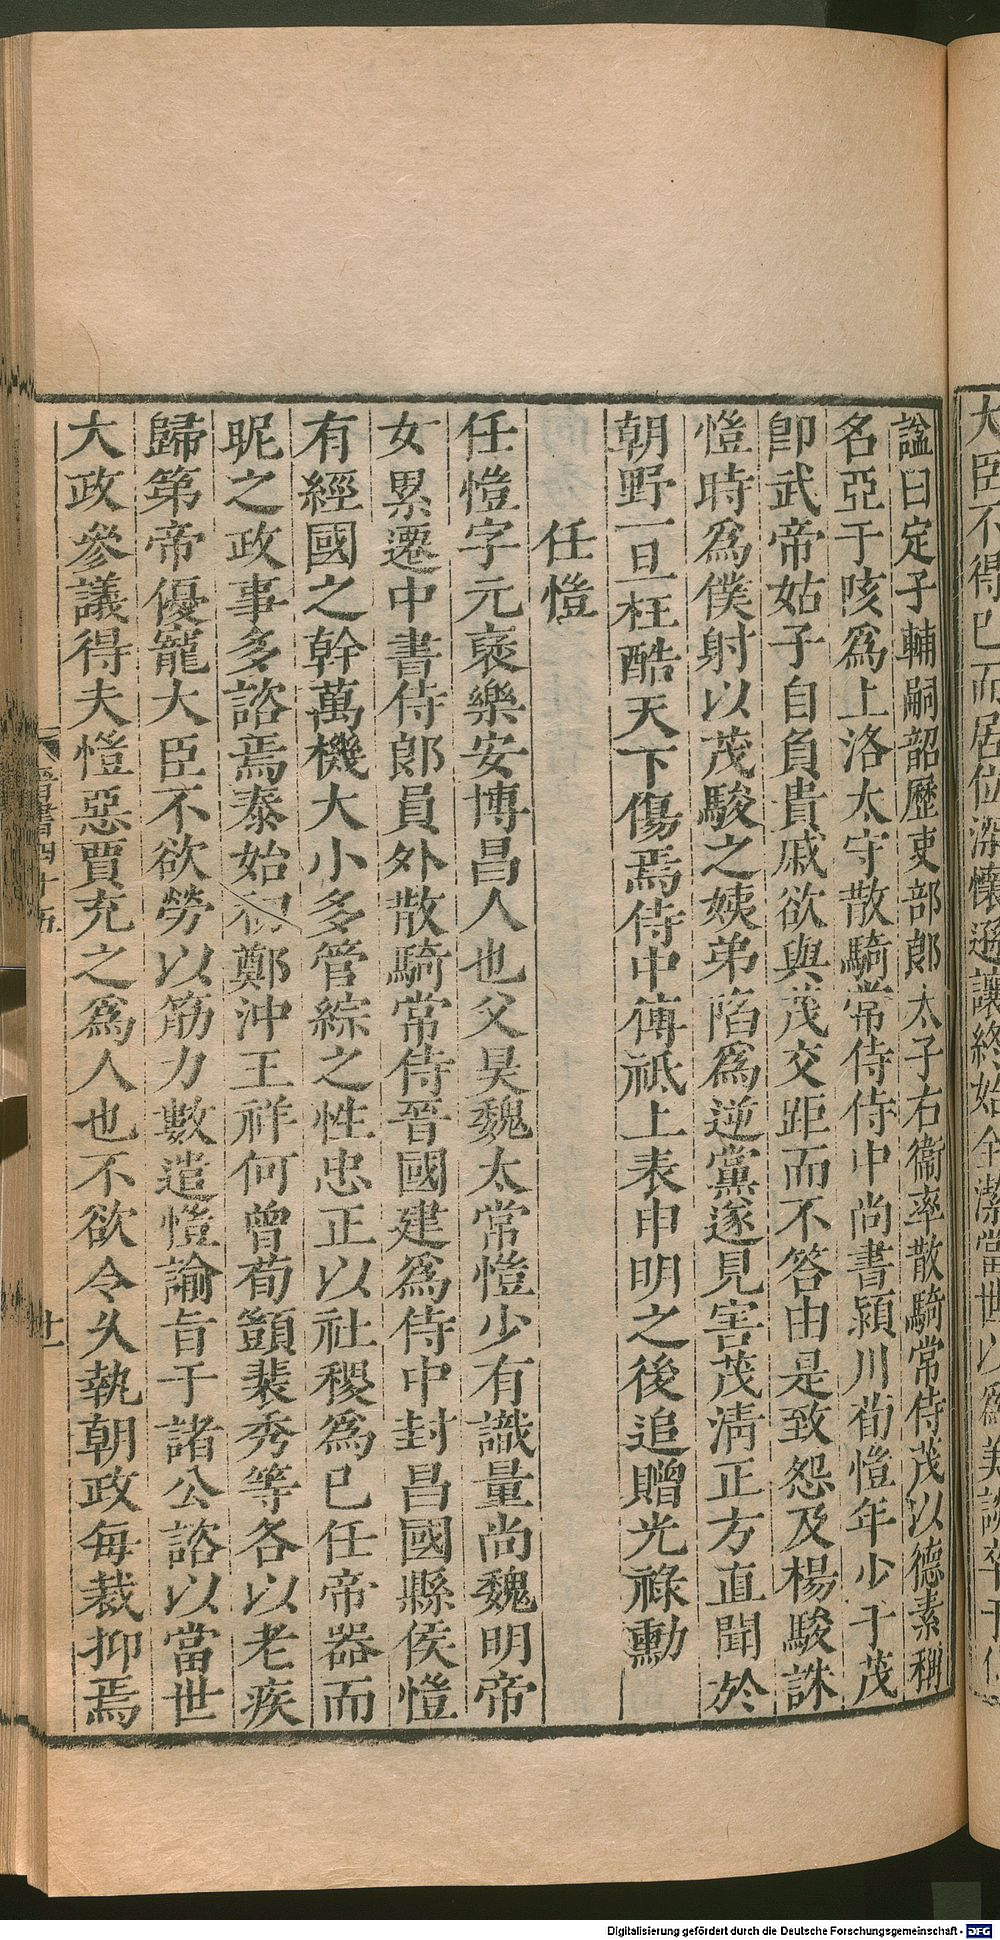 大臣不得已而居位深懷遜讓終始全潔當世以爲美談卒于位
諡曰定子輔嗣韶歷吏部郎太子右衞率散騎常侍茂以德素稱
名亞于陔爲上洛太守散騎常侍侍中尚書潁川荀愷年少于茂
卽武帝姑子自負貴戚欲與茂交距而不答由是致怨及楊駿誅
愷時爲僕射以茂駿之姨弟陷爲逆黨遂見害茂淸正方直聞於
朝野一旦枉酷天下傷焉侍中傅祗上表申明之後追贈光祿勳
任愷
任愷字元褎樂安博昌人也父昊魏太常愷少有識量尚魏明帝
女累遷中書侍郎員外散騎常侍晉國建爲侍中封昌國縣侯愷
有經國之幹萬機大小多管綜之性忠正以社稷爲己任帝器而
昵之政事多諮焉泰始初鄭沖王祥何曾荀顗裴秀等各以老疾
歸第帝優寵大臣不欲勞以筋力數遣愷諭旨于諸公諮以當世
大政參議得夫愷惡賈充之爲人也不欲令久執朝政每裁抑焉
晉書四十五
廿一
Digitalisierung gefördert durch die Deutsche Forschungsgemeinschaft - DFG